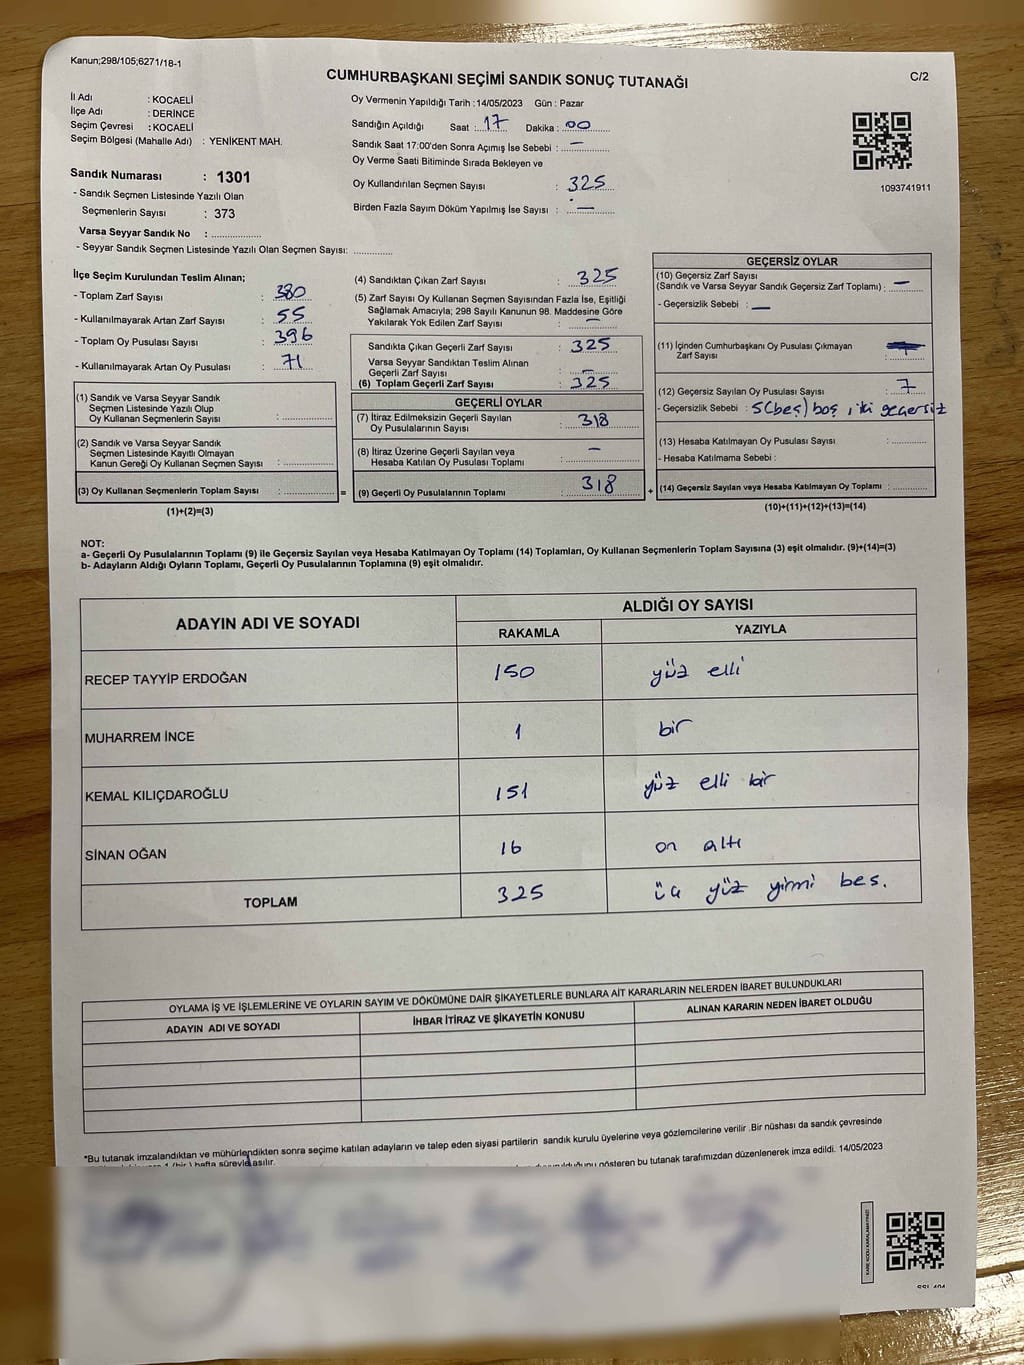 Kanun;298/105;6271/18-1
C/2
CUMHURBAŞKANI SEÇİMİ SANDIK SONUÇ TUTANAĞI
İl Adı : KOCAELİ
İlçe Adı : DERİNCE
Seçim Çevresi : KOCAELİ
Seçim Bölgesi (Mahalle Adı) : YENİKENT MAH.
Sandık Numarası : 1301
- Sandık Seçmen Listesinde Yazılı Olan
Seçmenlerin Sayısı : 373
Varsa Seyyar Sandık No : ..................
- Seyyar Sandık Seçmen Listesinde Yazılı Olan Seçmen Sayısı: ..............
Oy Vermenin Yapıldığı Tarih : 14/05/2023 Gün : Pazar
Sandığın Açıldığı Saat : 17 Dakika : 00
Sandık Saat 17:00'den Sonra Açımış İse Sebebi : —
Oy Verme Saati Bitiminde Sırada Bekleyen ve
Oy Kullandırılan Seçmen Sayısı : 325
Birden Fazla Sayım Döküm Yapılmış İse Sayısı : —
1093741911
İlçe Seçim Kurulundan Teslim Alınan;
- Toplam Zarf Sayısı : 380
- Kullanılmayarak Artan Zarf Sayısı : 55
- Toplam Oy Pusulası Sayısı : 396
- Kullanılmayarak Artan Oy Pusulası : 71
(1) Sandık ve Varsa Seyyar Sandık
Seçmen Listesinde Yazılı Olup
Oy Kullanan Seçmenlerin Sayısı : ..............
(2) Sandık ve Varsa Seyyar Sandık
Seçmen Listesinde Kayıtlı Olmayan
Kanun Gereği Oy Kullanan Seçmen Sayısı : ..............
(3) Oy Kullanan Seçmenlerin Toplam Sayısı : ..............
(1)+(2)=(3)
=
(4) Sandıktan Çıkan Zarf Sayısı : 325
(5) Zarf Sayısı Oy Kullanan Seçmen Sayısından Fazla İse, Eşitliği
Sağlamak Amacıyla; 298 Sayılı Kanunun 98. Maddesine Göre
Yakılarak Yok Edilen Zarf Sayısı : —
Sandıkta Çıkan Geçerli Zarf Sayısı : 325
Varsa Seyyar Sandıktan Teslim Alınan
Geçerli Zarf Sayısı : —
(6) Toplam Geçerli Zarf Sayısı : 325
GEÇERLİ OYLAR
(7) İtiraz Edilmeksizin Geçerli Sayılan
Oy Pusulalarının Sayısı : 318
(8) İtiraz Üzerine Geçerli Sayılan veya
Hesaba Katılan Oy Pusulası Toplamı : —
(9) Geçerli Oy Pusulalarının Toplamı : 318
+
GEÇERSİZ OYLAR
(10) Geçersiz Zarf Sayısı
(Sandık ve Varsa Seyyar Sandık Geçersiz Zarf Toplamı) : —
- Geçersizlik Sebebi : —
(11) İçinden Cumhurbaşkanı Oy Pusulası Çıkmayan
Zarf Sayısı
(12) Geçersiz Sayılan Oy Pusulası Sayısı : 7
- Geçersizlik Sebebi : 5(beş) boş, iki geçersiz
(13) Hesaba Katılmayan Oy Pusulası Sayısı : ..........
- Hesaba Katılmama Sebebi :
(14) Geçersiz Sayılan veya Hesaba Katılmayan Oy Toplamı : ..........
(10)+(11)+(12)+(13)=(14)
NOT:
a- Geçerli Oy Pusulalarının Toplamı (9) ile Geçersiz Sayılan veya Hesaba Katılmayan Oy Toplamı (14) Toplamları, Oy Kullanan Seçmenlerin Toplam Sayısına (3) eşit olmalıdır. (9)+(14)=(3)
b- Adayların Aldığı Oyların Toplamı, Geçerli Oy Pusulalarının Toplamına (9) eşit olmalıdır.
ADAYIN ADI VE SOYADI ALDIĞI OY SAYISI
RAKAMLA YAZIYLA
RECEP TAYYİP ERDOĞAN 150 yüz elli
MUHARREM İNCE 1 bir
KEMAL KILIÇDAROĞLU 151 yüz elli bir
SİNAN OĞAN 16 on altı
TOPLAM 325 üç yüz yirmi beş.
OYLAMA İŞ VE İŞLEMLERİNE VE OYLARIN SAYIM VE DÖKÜMÜNE DAİR ŞİKAYETLERLE BUNLARA AİT KARARLARIN NELERDEN İBARET BULUNDUKLARI
ADAYIN ADI VE SOYADI İHBAR İTİRAZ VE ŞİKAYETİN KONUSU ALINAN KARARIN NEDEN İBARET OLDUĞU
*Bu tutanak imzalandıktan ve mühürlendikten sonra seçime katılan adayların ve talep eden siyasi partilerin sandık kurulu üyelerine veya gözlemcilerine verilir .Bir nüshası da sandık çevresinde
1 (bir) hafta süreyle asılır.
gösteren bu tutanak tarafımızdan düzenlenerek imza edildi. 14/05/2023